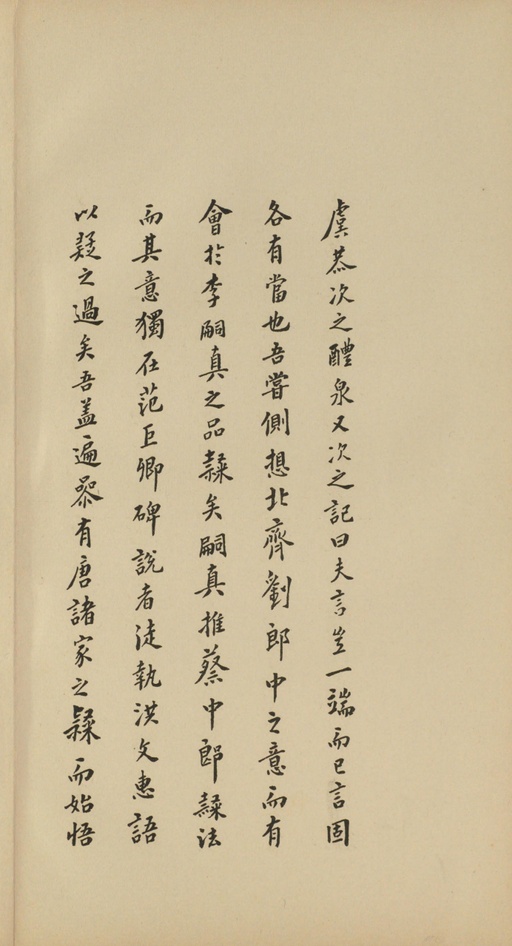 虞恭次之醴泉又次之記曰夫言豈一端而已言固
各有當也吾嘗側想北齊劉郎中之意而有
會於李嗣真之品隸矣嗣真推蔡中郎隸法
而其意獨在范巨卿碑說者徒執洪文惠語
以疑之過矣吾蓋遍叅有唐諸家之隸而始悟